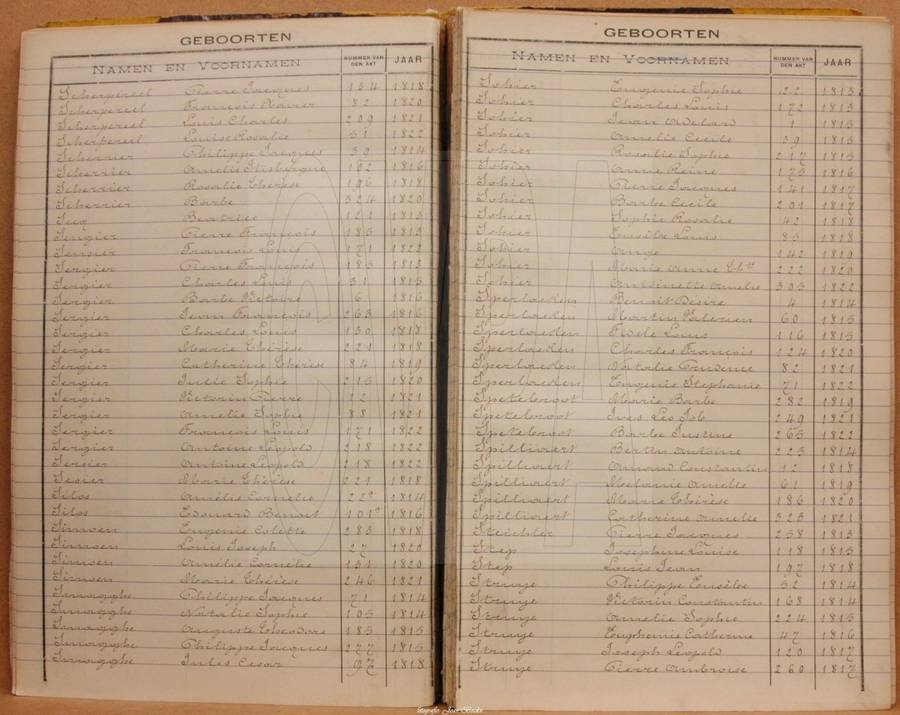 GEBOORTEN
NAMEN EN VOORNAMEN NUMMER VAN DEN AKT JAAR
Scherpereel Pierre Jacques 154 1818
Scherpereel François Xavier 82 1820
Scherpereel Louis Charles 209 1821
Scherpereel Louise Rosalie 51 1822
Scherrier Philippe Jacques 39 1814
Scherrier Amelie 132 1816
Scherrier Rosalie Thérèse 196 1818
Scherrier Barbe 324 1820
Beatrice 121 1815
Pierre François 185 1813
François Louis 171 1822
Sergier Pierre François 185 1813
Sergier Charles Louis 31 1815
Sergier Barbe Victoire 6 1816
Sergier Jean François 263 1816
Sergier Charles Louis 130 1818
Sergier Marie Thérèse 221 1818
Sergier Catherine Thérèse 84 1819
Sergier Julie Sophie 215 1820
Sergier Victorin Pierre 12 1821
Sergier Amelie Sophie 88 1821
Sergier François Louis 171 1822
Sergier Antoine Léopold 218 1822
Antoine Léopold 218 1822
Marie Thérèse 221 1818
Silos Amélie Cornelie 1814
Silos Edouard Benoit 1816
Simoen Eugenie Colette 283 1818
Simoen Louis Joseph 27 1820
Simoen Amelie Cornelie 131 1820
Simoen Marie Thérèse 246 1821
Philippe Jacques 71 1814
Natalie Sophie 105 1814
Auguste Theodore 185 1815
Philippe Jacques 277 1815
Jules Cesar 97 1818
GEBOORTEN
NAMEN EN VOORNAMEN NUMMER VAN DEN AKT JAAR
Sohier Eugenie Sophie 22 1813
Sohier Charles Louis 172 1813
Sohier Jean 1 1815
Sohier Amelie Cecile 39 1815
Sohier Rosalie Sophie 217 1815
Sohier Anne Reine 175 1816
Sohier Pierre Jacques 141 1817
Sohier Barbe Cecile 201 1817
Sohier Sophie Rosalie 42 1818
Sohier Louis 85 1818
Sohier 142 1819
Sohier Marie Anne 222 1820
Sohier Antoinette Amelie 303 1822
Sperlaeken Benoit Desire 4 1814
Sperlaeken Martin Valerien 60 1815
Sperlaeken Fidele Louis 116 1815
Sperlaeken Charles François 124 1820
Sperlaeken Natalie 82 1821
Sperlaeken Eugenie Stephanie 71 1822
Spetebroot Marie Barbe 282 1819
Spetebroot Ives Leo Job 249 1821
Spetebroot Barbe Justine 265 1822
Spilliaert Bertin Antoine 225 1814
Spilliaert Armand Constantin 12 1818
Spilliaert Melanie Amelie 61 1819
Spilliaert Marie Thérèse 186 1820
Spilliaert Catherine Amelie 323 1821
Pierre Jacques 258 1813
Step Josephine Louise 118 1815
Step Louis Jean 197 1818
Struye Philippe Eusèbe 52 1814
Struye Victorin Constantin 168 1814
Struye Amelie Sophie 224 1815
Struye Euphemie Catherine 47 1816
Struye Joseph Leopold 120 1817
Struye Pierre Ambroise 260 1817